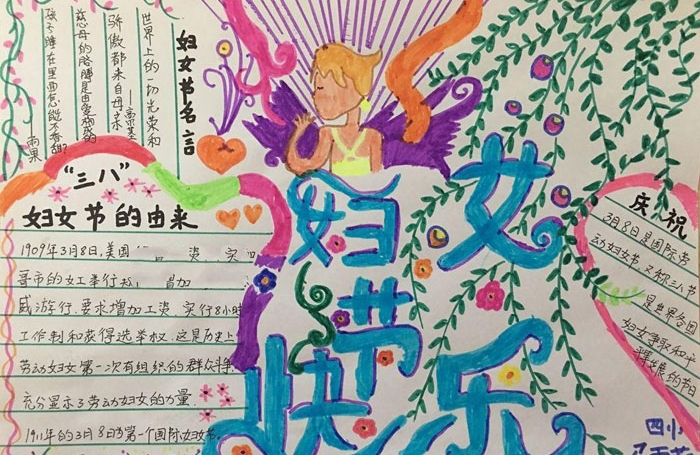 妇女节名言
世界上的一切光荣和
骄傲都来自母亲
——高尔基
慈母的胳膊是由爱构成的
孩子睡在里面怎能不香甜?
雨果
“三八”
妇女节的由来
1909年3月8日,美国 资 实
哥市的女工举行 增加
威游行.要求增加工资 实行8小时
工作制和获得选举权.这是历史上
劳动妇女第一次有组织的群众斗争
充分显示了劳动妇女的力量
1911年的3月8日为第一个国际妇女节.
妇女
节
快乐
庆祝
3月8日是国际劳
动妇女节,又称三八节
是世界各国
妇女争取和平
发展的节日
四小